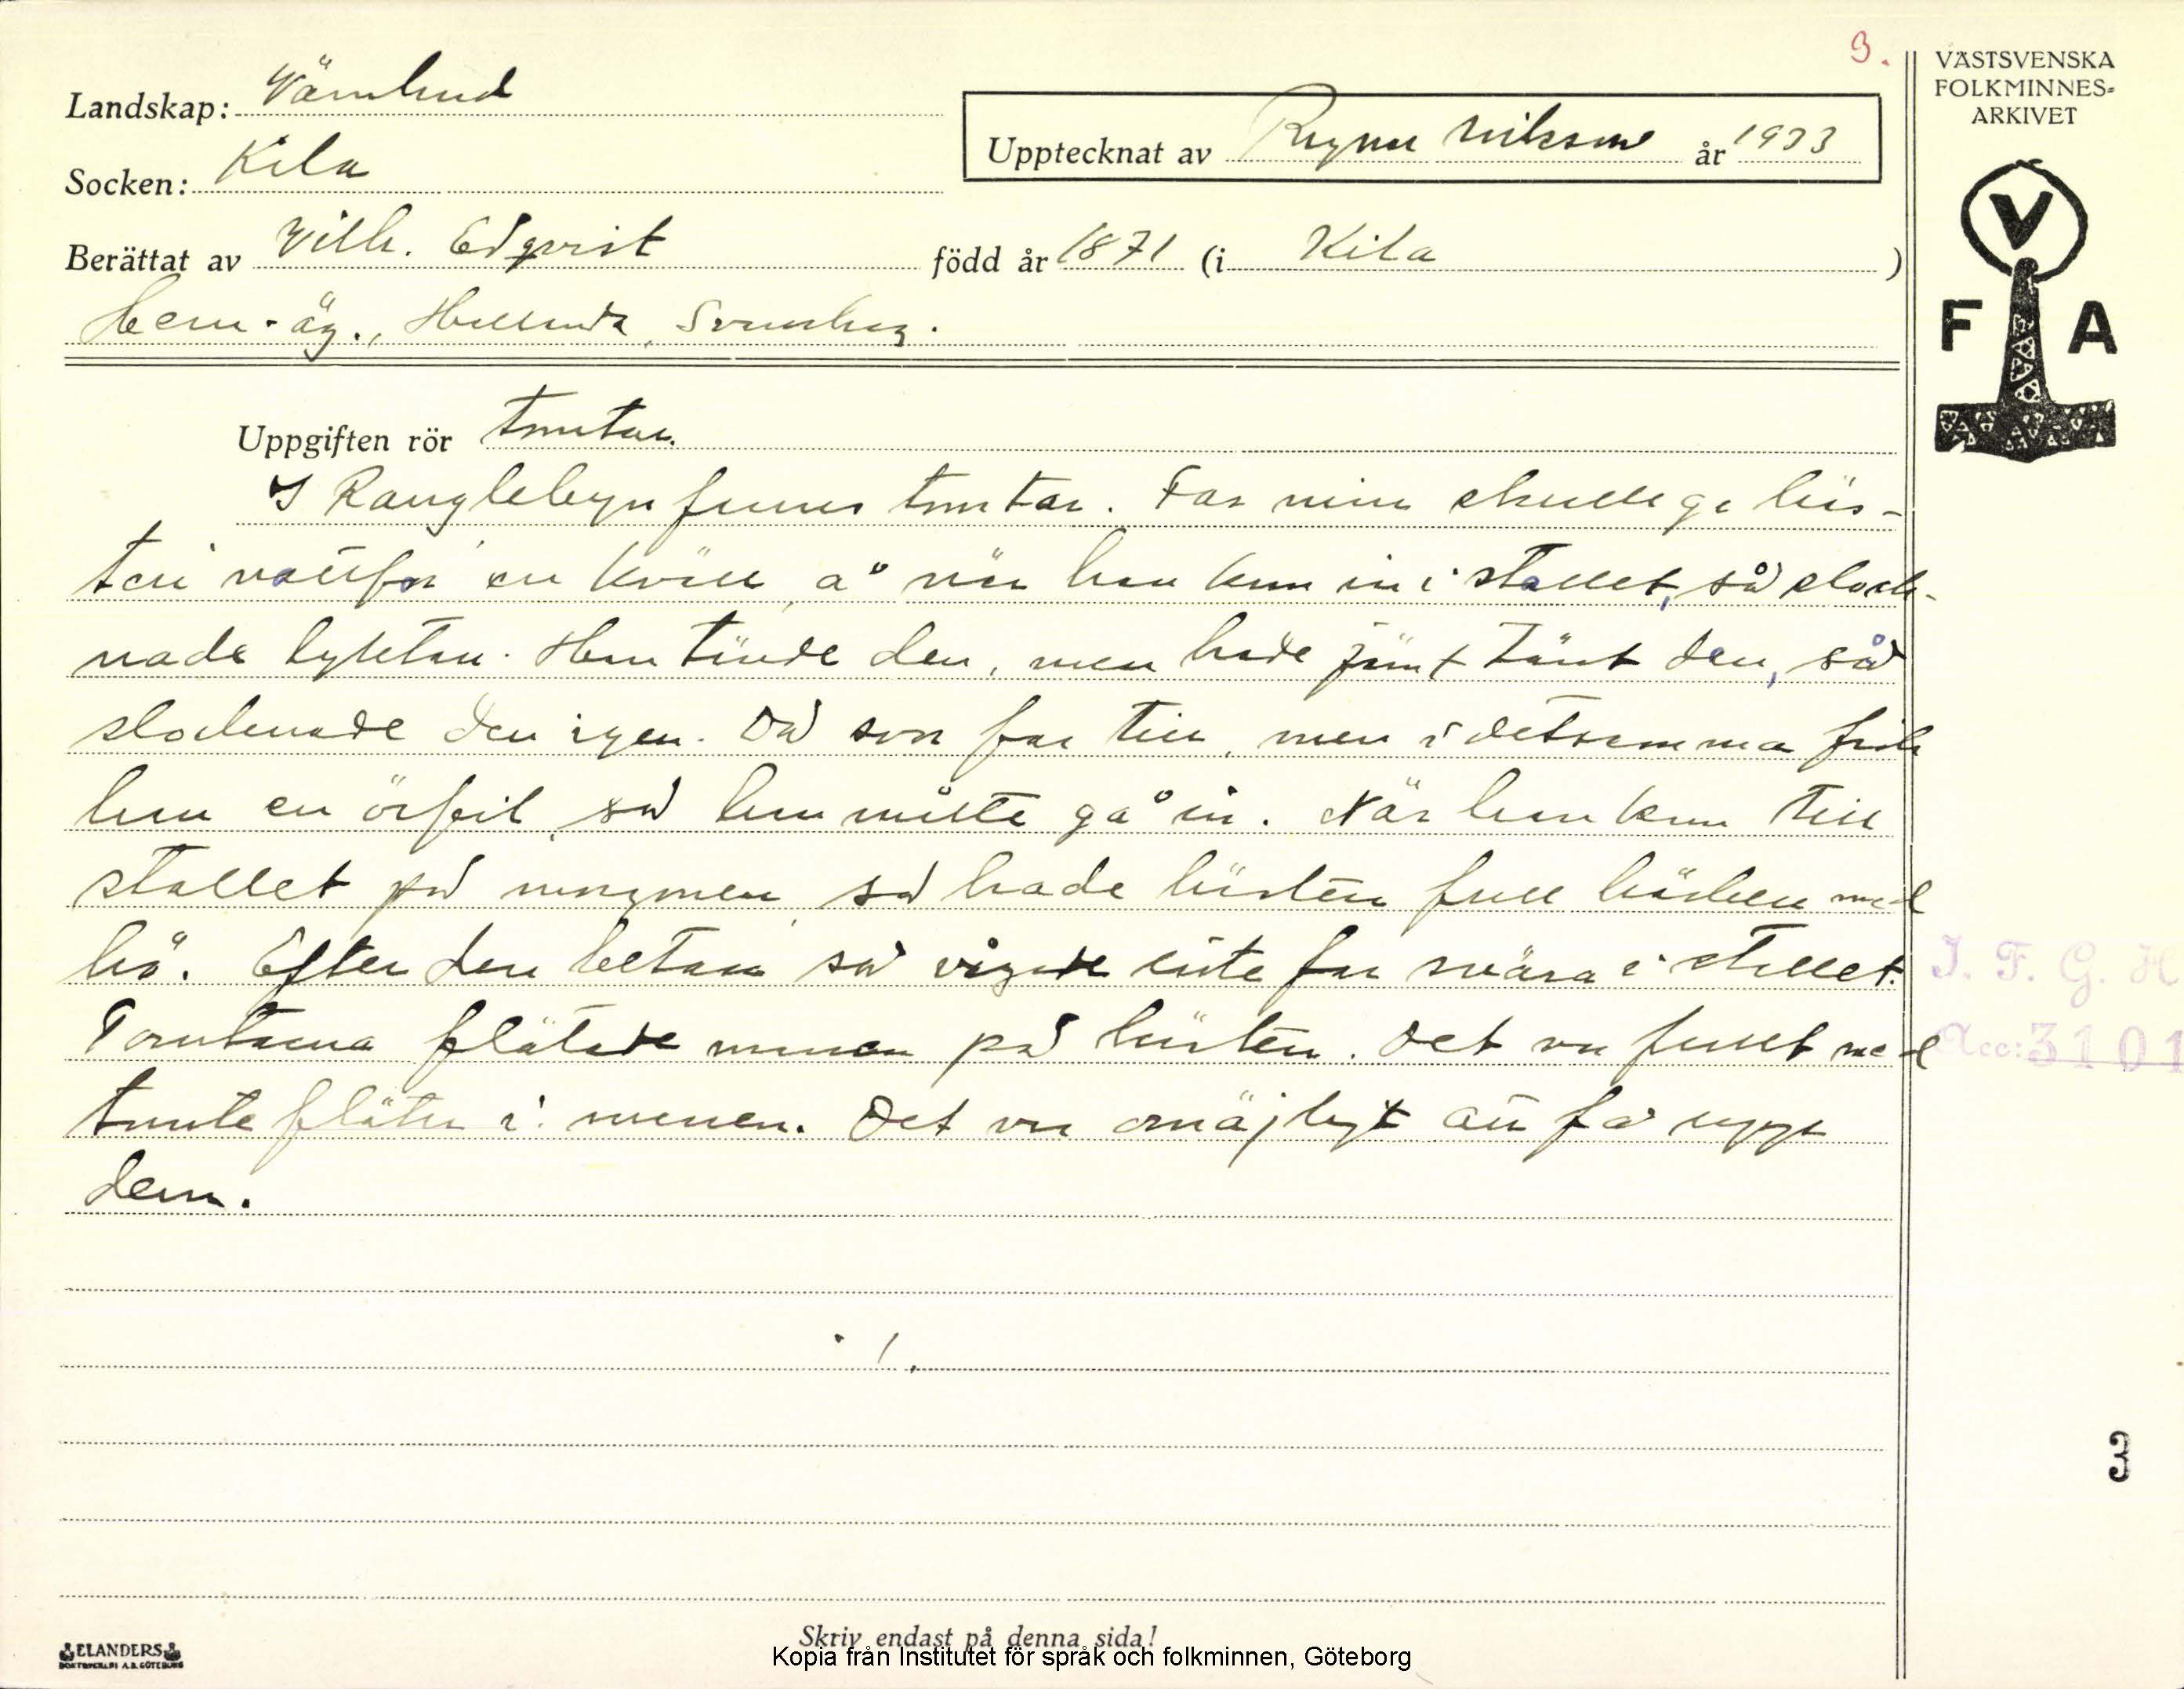 3.
Landskap: Värmland
Socken: Kila
Upptecknat av Ragnar Nilsson år 1933
Berättat av Vilh. Edqvist född år 1871 (i Kila )
Hem.äg., Svanskog.
Uppgiften rör Tomtar.
I Ranglebyn funns tomtar. Far min skulle ge häs-
ten vattfor en kväll, å när han kom in i stallet, så slock-
nade lyktan. Han tände den, men hade jämt tänt den, så
slocknade den igen. Då svor far till, men i detsamma fick
han en örfil, så han måtte gå in. När han kom till
stallet på morgonen, så hade hästen full häcken med
hö. Efter den betan så vågade inte far svära i stallet.
Tomtarna flätade manen på hästen. Det var fullt med
tomteflätor i manen. Det var omöjligt att få upp
dem.
VÄSTSVENSKA
FOLKMINNES-
ARKIVET
V
F A
I. F. G. H
Acc: 3101
3
ELANDERS
BOKTRYCKERI A.B. GÖTEBORG
Skriv endast på denna sida!
Kopia från Institutet för språk och folkminnen, Göteborg